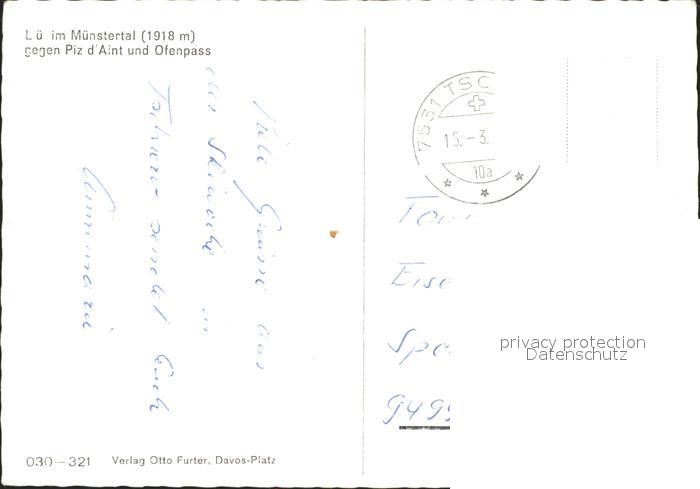 Lü im Münstertal (1918 m)
gegen Piz d'Aint und Ofenpass
Viele Grüsse aus
der Skiwoche in
Tschierv sendet Euch
Annemarie
7531 TSC
15.-3.
10a
Eise
Spe
949
privacy protection
Datenschutz
030-321 Verlag Otto Furter, Davos-Platz